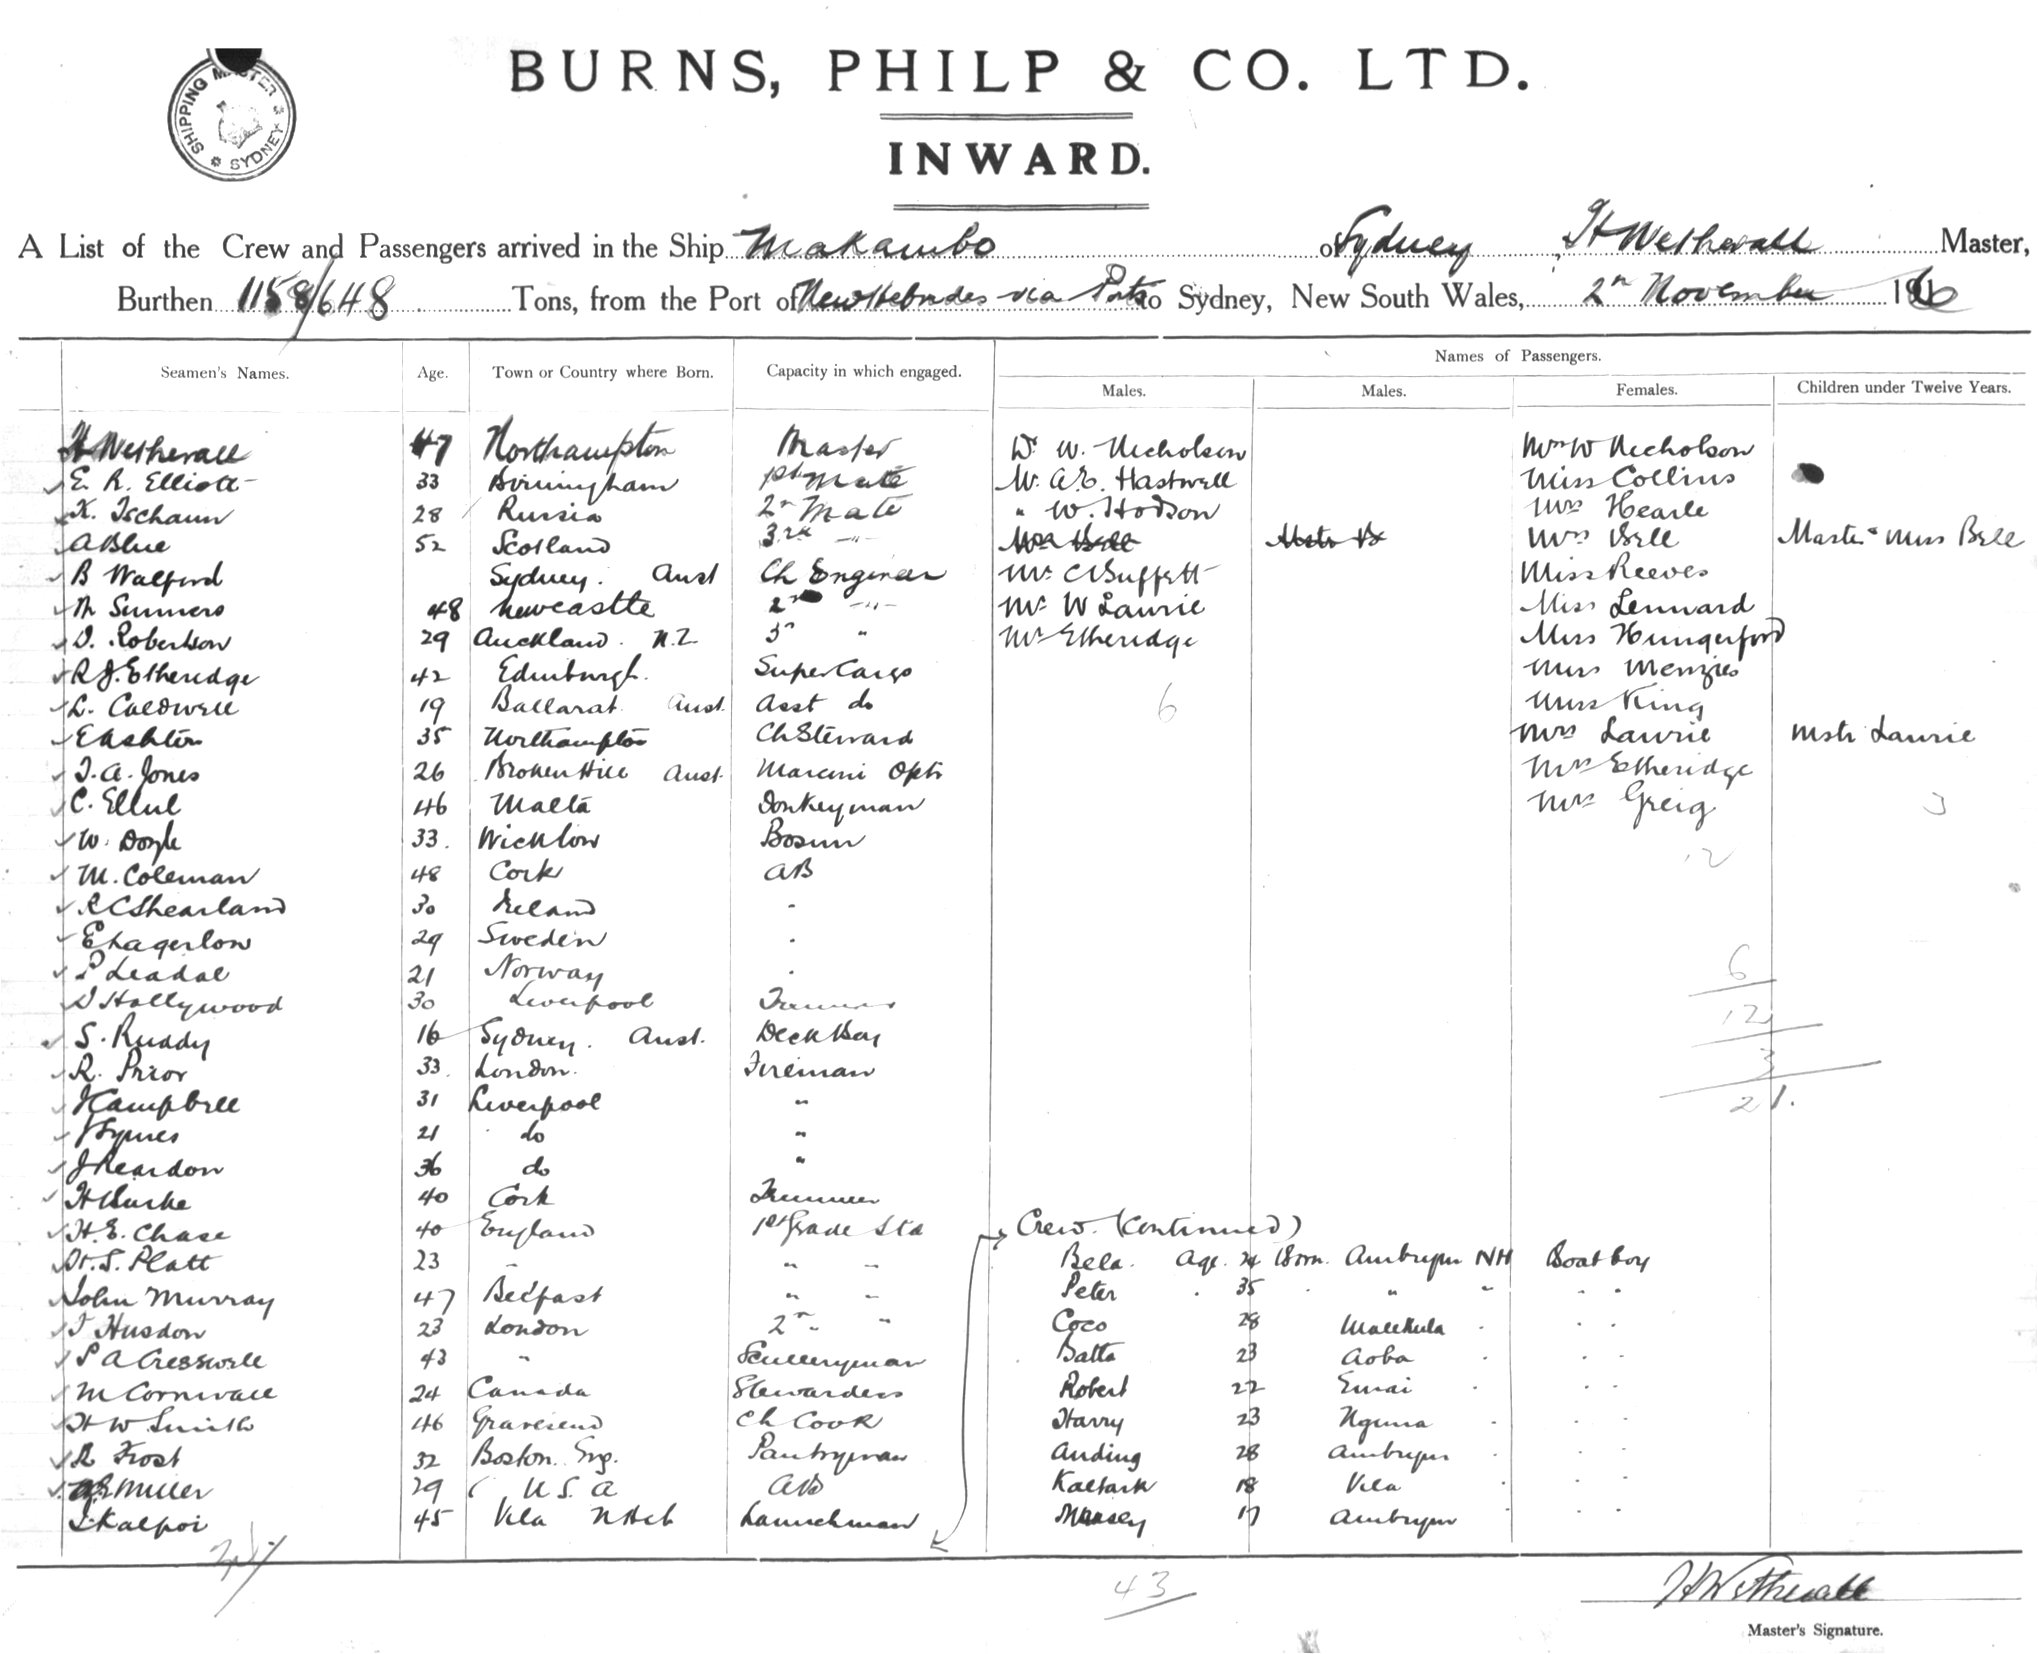 SHIPPING MASTER SYDNEY
BURNS, PHILP & CO. LTD.
INWARD.
A List of the Crew and Passengers arrived in the Ship Makambo of Sydney, H Wetherall Master,
Burthen 1158/648 Tons, from the Port of New Hebrides via Ports to Sydney, New South Wales, 2n November 1916
Names of Passengers.
Seamen's Names. Age. Town or Country where Born. Capacity in which engaged. Males. Males. Females. Children under Twelve Years.
H Wetherall 47 Northampton Master Dr W. Nicholson Mrs W Nicholson
E. R. Elliott 33 Birmingham 1st Mate Mr. A.E. Hastwell Miss Collins
K. Tschaun 28 Russia 2n Mate " W. Hodson Mrs Hearle
A Blue 52 Scotland 3rd -"- Mrs Bell Master & Miss Bell
B Walford Sydney. Aust Ch Engineer Mr C Buffett Miss Reeves
M Summers 48 Newcastle 2n -"- Mr W Laurie Miss Lennard
D. Robertson 29 Auckland. N.Z. 3r " Mr Etheridge Miss Hungerford
R J. Etheridge 42 Edinburgh. SuperCargo Miss Menzies
L. Caldwell 19 Ballarat Aust. Asst do 6 Miss King
E Ashton 35 Northampton Ch Steward Mrs Laurie Mstr Laurie
T. A. Jones 26 Broken Hill Aust. Marconi Optr Mrs Etheridge
C. Ellul 46 Malta Donkeyman Mrs Greig 3
W. Doyle 33. Wicklow Bosun
12
M. Coleman 48 Cork AB
R C Shearland 30 Ireland "
E Lagerlow 29 Sweden "
6
P Leadal 21 Norway "
D Hollywood 30 Liverpool Trimmer
12
S. Ruddy 16 Sydney. Aust. Deck Boy
3
R. Prior 33. London. Fireman
J Campbell 31 Liverpool "
21.
J Symes 21 do "
J Reardon 36 do "
H Burke 40 Cork Trimmer
H. E. Chase 40 England 1st Grade Std Crew. (Continued)
H. S. Platt 23 " " " Bela. Age. 24 Born. Ambrym NH Boat boy
John Murray 47 Belfast " " Peter 35 " " " "
T Husdon 23 London 2n " Coco 28 Malekula " "
P A Cresswell 43 " Sculleryman Batta 23 Aoba " "
M Cornwall 24 Canada Stewardess Robert 22 Emai " "
H W Smith 46 Gravesend Ch Cook Harry 23 Nguna " "
R Frost 32 Boston. Eng. Pantryman Anding 28 Ambrym " "
Miller 29 U. S. A AB Kaltark 18 Vila " "
Kalpoi 45 Vila N Heb Launchman 17 Ambrym " "
43
H Wetherall
Master's Signature.